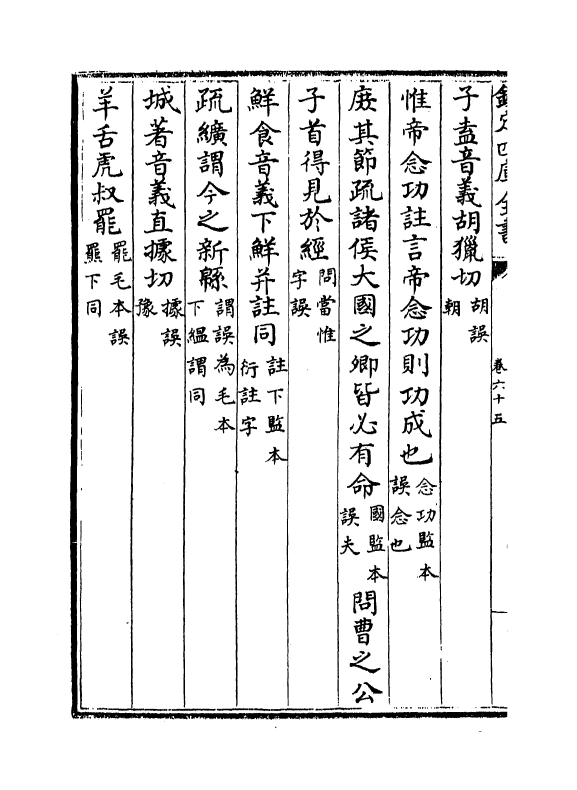 欽定四庫全書
卷六十五
子盍音義胡獵切胡誤朝
惟帝念功註言帝念功則功成也念功監本誤念也
庻其節疏諸侯大國之卿皆必有命國監本誤夫問曹之公
子首得見於經問當惟字誤
鮮食音義下鮮并註同註下監本衍註字
疏纊謂今之新緜謂誤為毛本下緼謂同
城著音義直據切據誤豫
羊舌虎叔羆羆毛本誤羆下同